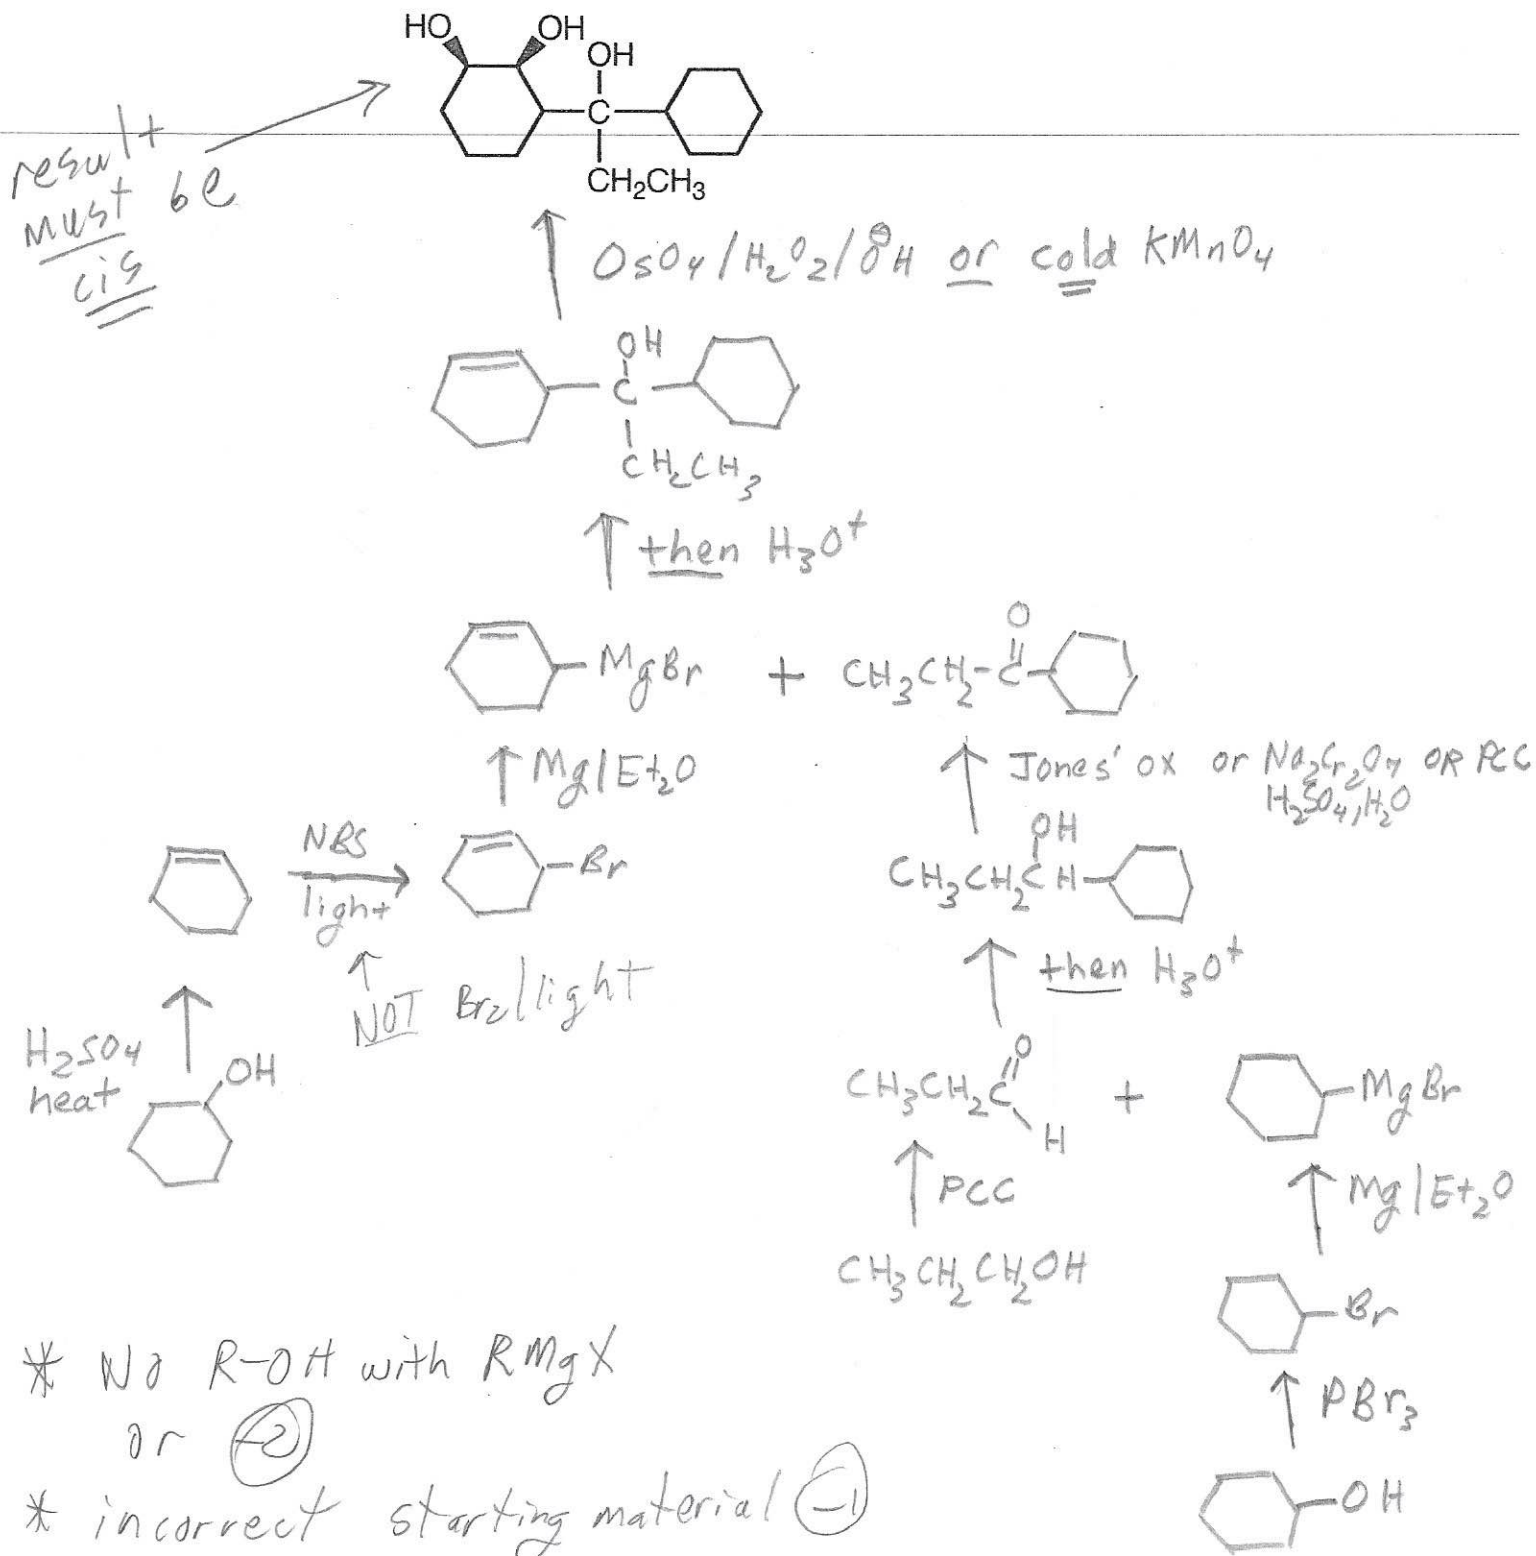 HO OH
OH
C
CH₂CH₃
result
must be
cis
OsO₄/H₂O₂/⊖OH or cold KMnO₄
OH
C
CH₂CH₃
then H₃O⁺
O
MgBr + CH₃CH₂-C
Mg/Et₂O
Jones' ox or Na₂Cr₂O₇ OR PCC
H₂SO₄, H₂O
NBS
light
Br
OH
CH₃CH₂CH
NOT Br₂/light
then H₃O⁺
H₂SO₄
heat
OH
O
CH₃CH₂C
H
+
MgBr
PCC
Mg/Et₂O
CH₃CH₂CH₂OH
Br
* No R-OH with RMgX
or -2
PBr₃
* incorrect starting material -1
OH